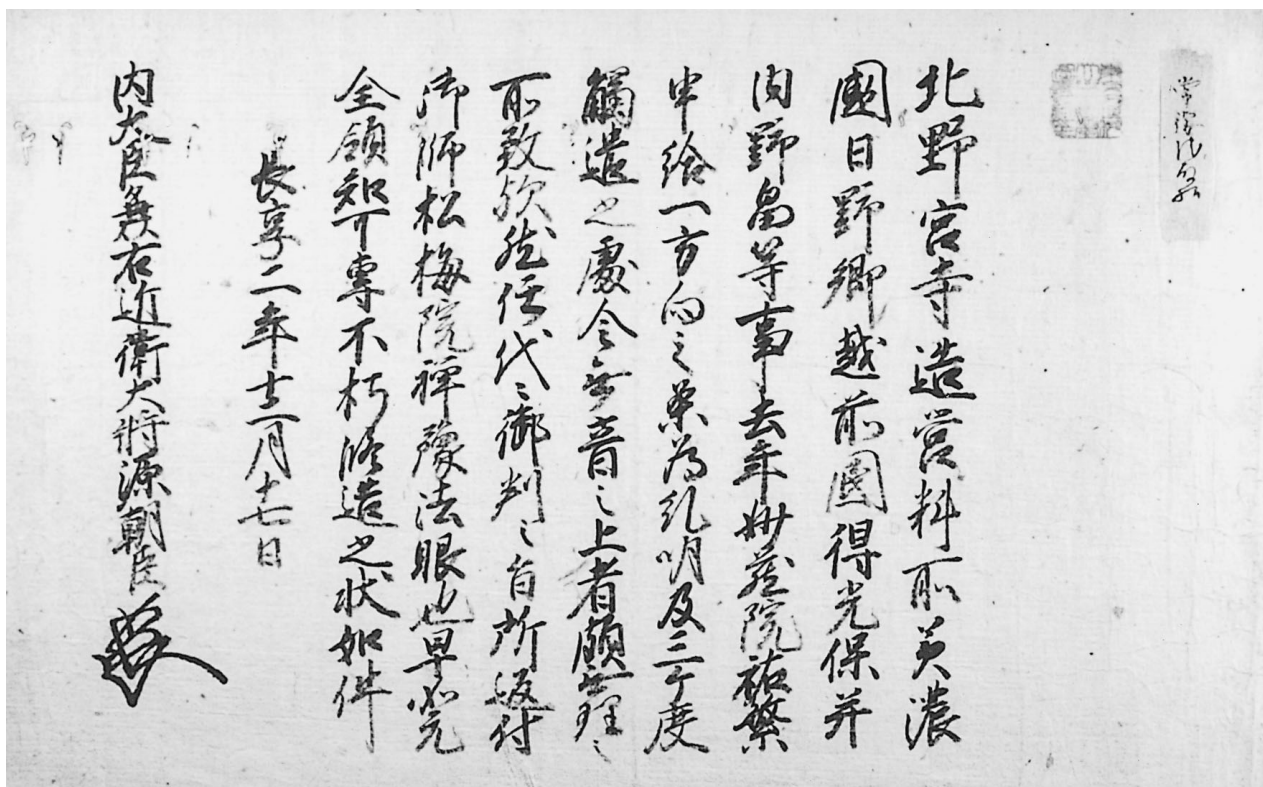 北野宮寺造営料所美濃
國日野郷越前國得光保并
内野畠等事去年妙蔵院祐繁
申給一方向之条為糺明及三ケ度
觸遣之處令無音之上者頗無理之
所致歟然任代々御判之旨所返付
御師松梅院禅豫法眼也早
全領知可専不朽修造之状如件
長享二年十二月十七日
内大臣兼右近衛大将源朝臣